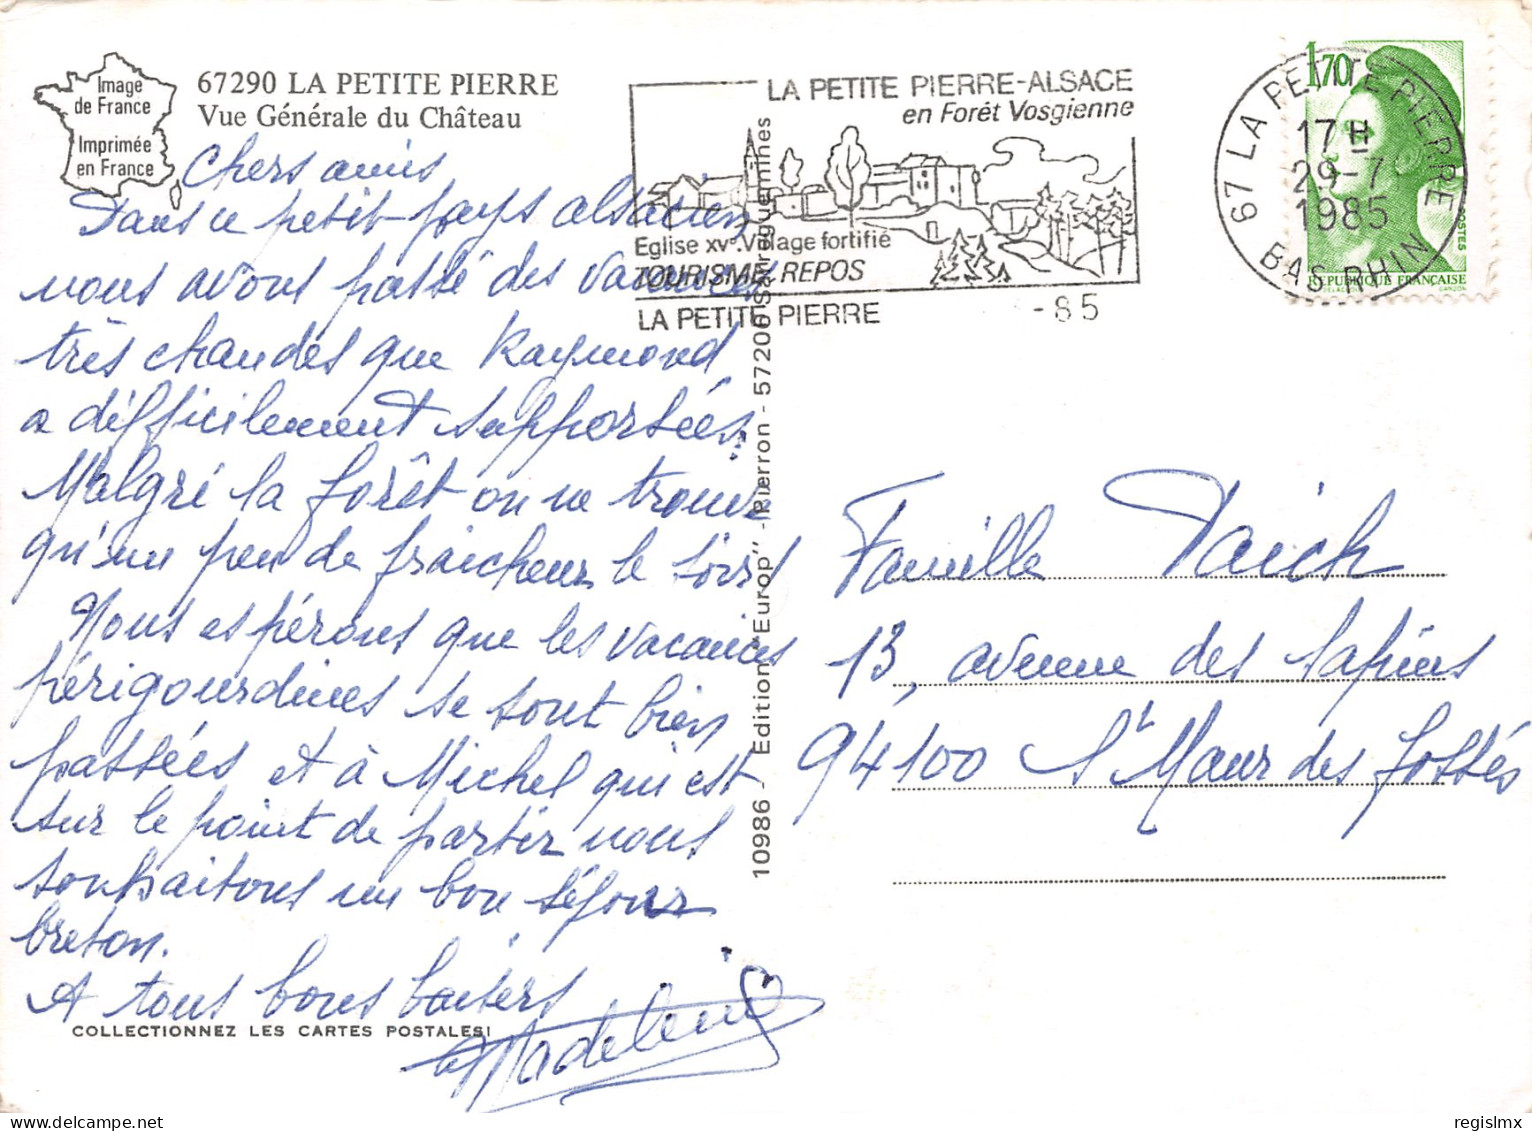 Image
de France
Imprimée
en France
67290 LA PETITE PIERRE
Vue Générale du Château
Chers amis
Dans ce petit pays alsacien,
nous avons passé des vacances
très chaudes que Raymond
a difficilement supportées.
Malgré la forêt on ne trouve
qu'un peu de fraicheur le soir!
Nous espérons que les vacances
périgourdines se sont bien
passées et à Michel qui est
sur le point de partir nous
souhaitons un bon séjour
breton.
A tous bons baisers
Madeleine
COLLECTIONNEZ LES CARTES POSTALES!
10986 - Edition "Europ" - Pierron - 57200 Sarreguemines
LA PETITE PIERRE-ALSACE
en Forêt Vosgienne
Eglise XVe. Village fortifié
TOURISME REPOS
LA PETITE PIERRE
-85
67 LA PETITE PIERRE
17 H
29-7
1985
BAS RHIN
1,70
POSTES
REPUBLIQUE FRANÇAISE
Famille
13, avenue des Sapins
94100 St Maur des fossés
regislmx